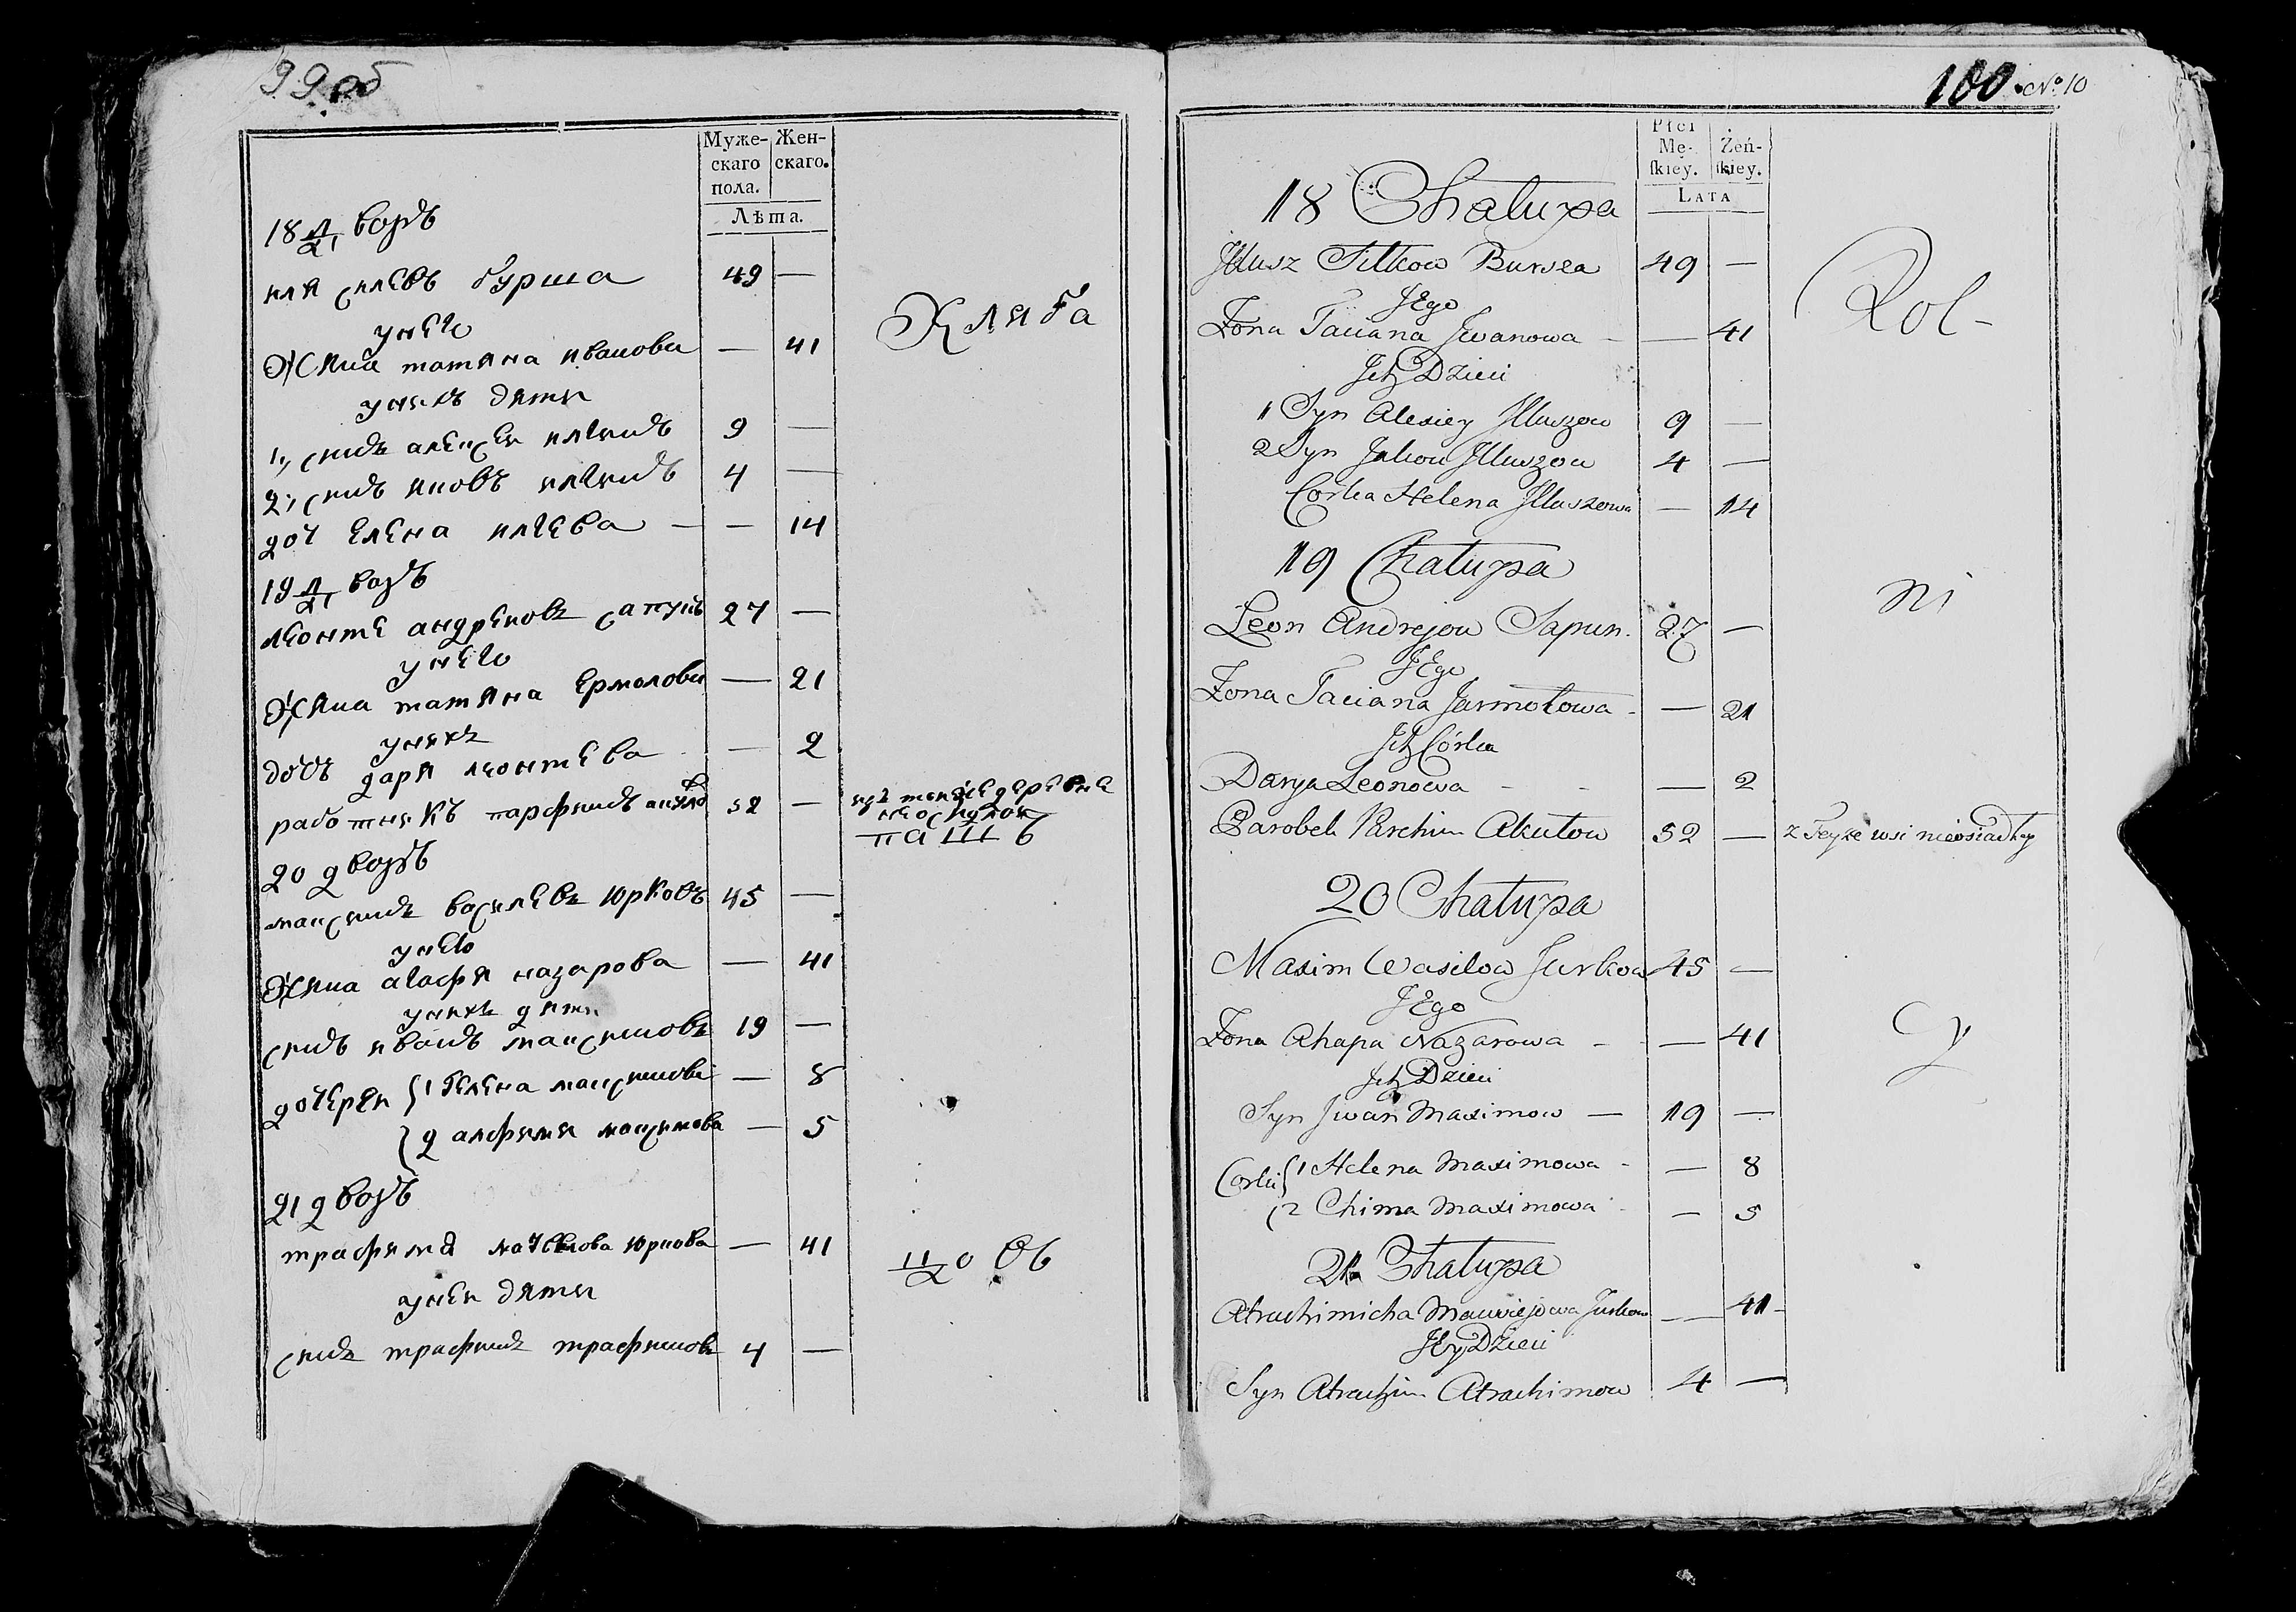 99 об
Муже-
скаго
пола.
Жен-
скаго.
Лѣта.
18 дворъ
илья силевъ бурша 49 —
унего
жена татяна иванова — 41
унихъ дети
1, синъ алексеи илеинъ 9 —
2, синъ яковъ илеинъ 4 —
доч елена илева — — 14
19 дворъ
леонте андреиовъ сапунъ 27 —
унего
жена татяна ермолова — 21
унихъ
дочъ даря леонтева — 2
работникъ парфинъ акуло 52 —
20 дворъ
максимъ василевъ юрковъ 45 —
унего
жена агафя назарова — 41
унихъ дети
синъ иванъ максимовъ 19 —
дочереи 1 гелена максимова — 8
2 алфимя максимова — 5
21 дворъ
трафима матвеиова юркова — 41
унеи дети
синъ трафимъ трафимовъ 4 —
Хляба
неоседлои
паш
цовъ
100. № 10
Płci
Mę-
skiey.
Żeń-
skiey.
Lata
18 Chałupa
Jlliusz Silkow Bursza 49 —
JEgo
Żona Taciana Jwanowa - — 41
Jch Dzieci
1 Syn Alexiey Jlluszow 9 —
2 Syn Jakow Jlluszow 4 —
Corka Helena Jlluszowa — 14
19 Chałupa
Leon Andrejow Sapun. 27 —
JEgo
Żona Taciana Jarmołowa - — 21
Jch Córka
Darya Leonowa - - — 2
Parobek Parchim Akułow 52 — z Teyże wsi nieosiadły
20 Chałupa
Maxim Wasilow Jurkow 45 —
JEgo
Żona Ahapa Nazarowa - — 41
Jch Dzieci
Syn Jwan Maximow — 19 —
Corki 1 Helena Maximowa - — 8
2 Chima Maximowa - — 5
21 Chałupa
Atrachimicha Mawiejowa Jurkow — 41 -
Jey Dzieci
Syn Atrachim Atrachimow 4 —
Rol-
ni
cy